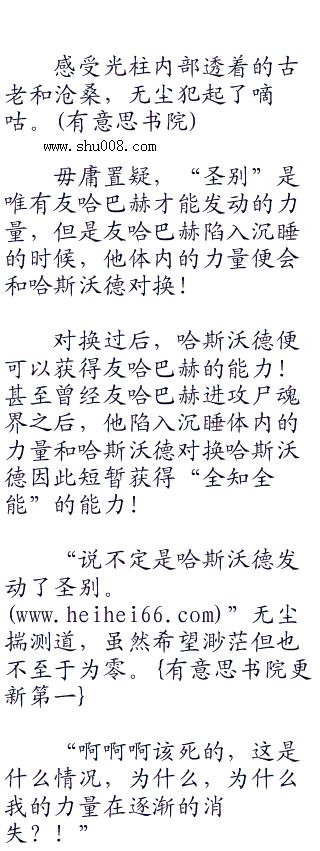 感受光柱内部透着的古
老和沧桑，无尘犯起了嘀
咕。(有意思书院)
www.shu008.com
毋庸置疑，“圣别”是
唯有友哈巴赫才能发动的力
量，但是友哈巴赫陷入沉睡
的时候，他体内的力量便会
和哈斯沃德对换！
对换过后，哈斯沃德便
可以获得友哈巴赫的能力！
甚至曾经友哈巴赫进攻尸魂
界之后，他陷入沉睡体内的
力量和哈斯沃德对换哈斯沃
德因此短暂获得“全知全
能”的能力！
“说不定是哈斯沃德发
动了圣别。
(www.heihei66.com)”无尘
揣测道，虽然希望渺茫但也
不至于为零。{有意思书院更
新第一}
“啊啊啊该死的，这是
什么情况，为什么，为什么
我的力量在逐渐的消
失？！”